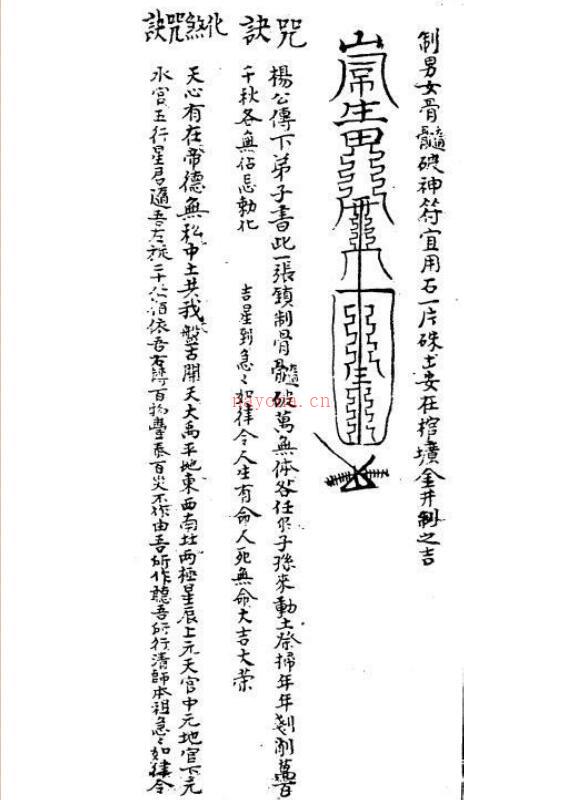 制男女骨髓破神符宜用石一片硃書安在棺壙金井制之吉
咒訣
楊公傳下弟子書此一張鎮制骨髓破萬無一咎任爾子孫來動土祭掃年年
千秋各無佔忌勅化 吉星到急々如律令人生有命人死無命大吉大荣
化煞咒訣
天心有在帝德無私中土共我盤古開天大禹平地東西南北两極星辰上元天官中元地官下元
水官五行星君 吾左 二十八宿依吾右 百物豐泰百災不作由吾所作聽吾所行清師本祖急々如律令
nayona.cn